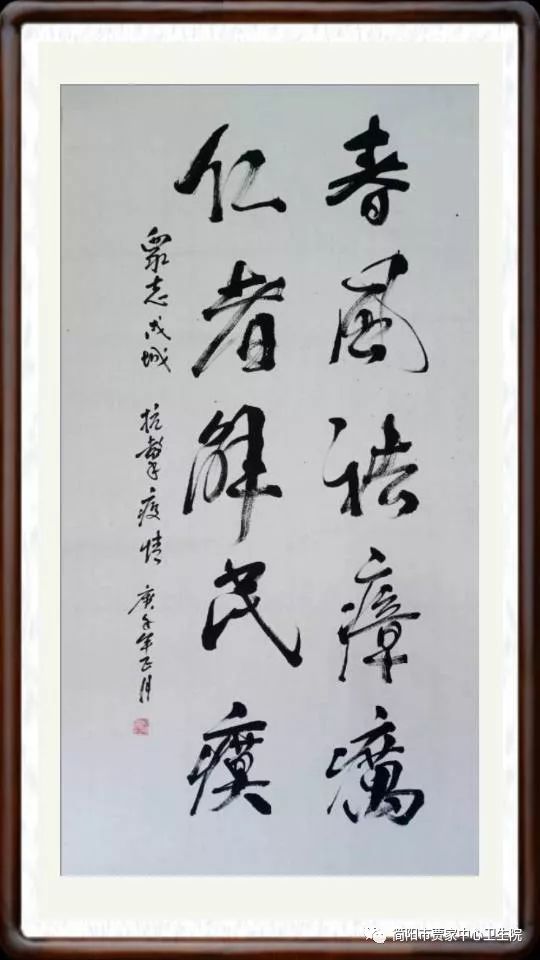 春風祛瘴癘
仁者解民瘼
眾志成城 抗擊疫情 庚子年正月
简阳市贾家中心卫生院